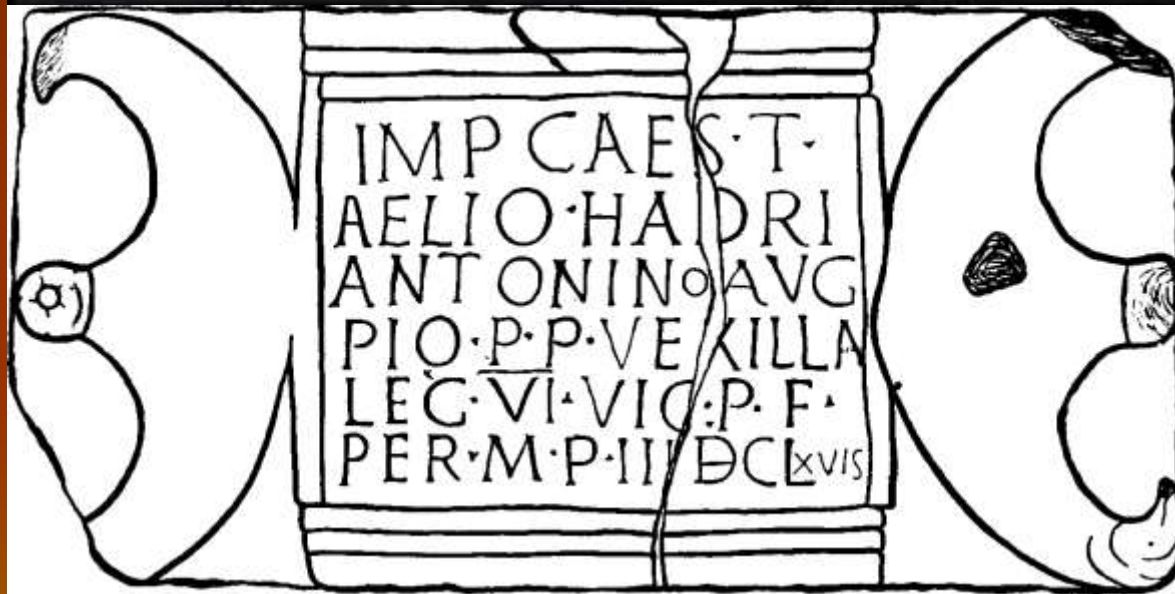 IMP CAES·T·
AELIO·HADRI
ANTONINO AVG
PIO·P·P·VEXILLA
LEG·VI·VIC·P·F·
PER·M·P·III DCLXVIS